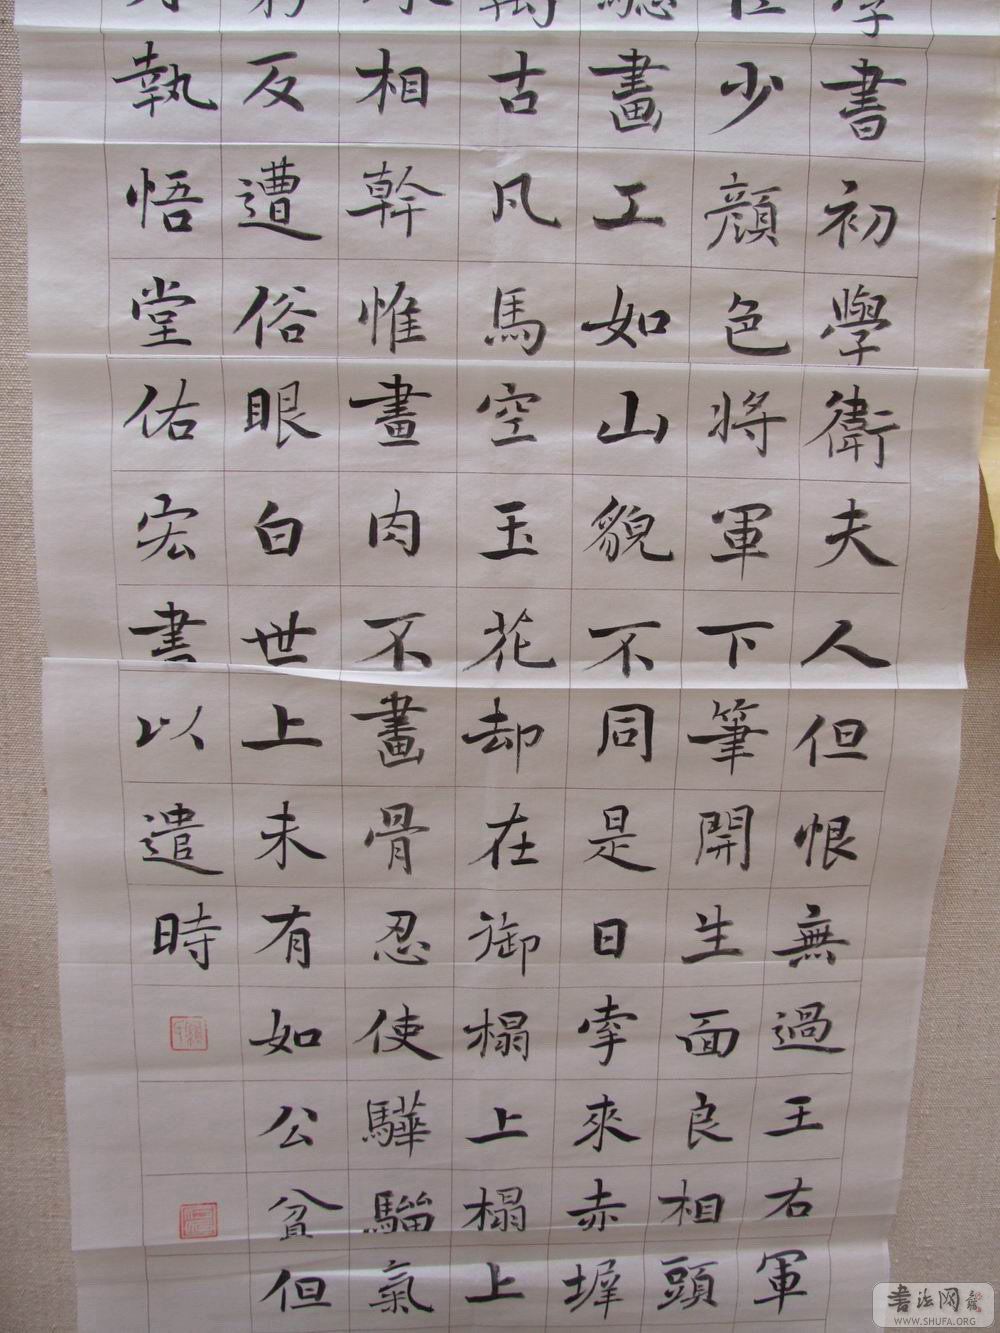 學書初學衛夫人但恨無過王右軍
少顏色將軍下筆開生面良相頭
驄畫工如山貌不同是日牽來赤墀
萬古凡馬空玉花却在御榻上榻上
相幹惟畫肉不畫骨忍使驊騮氣
反遭俗眼白世上未有如公貧但
執悟堂佑宏書以遣時
書法网
WWW.SHUFA.ORG